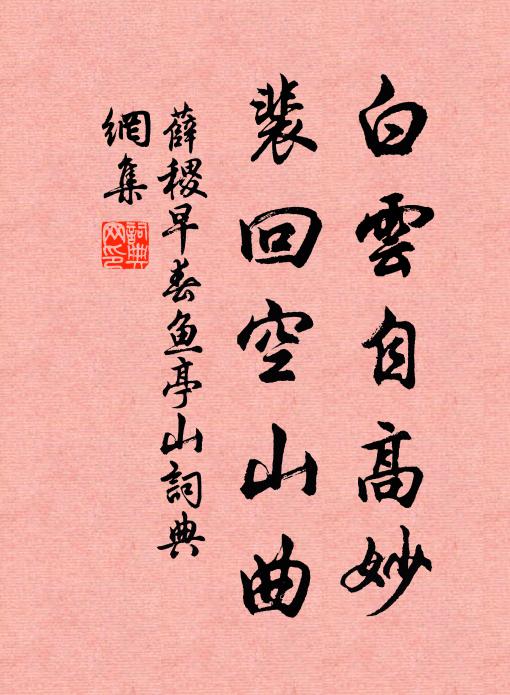 白雲自高妙
裴回空山曲
薛稷早春魚亭山詞典
網集
詞典
网印